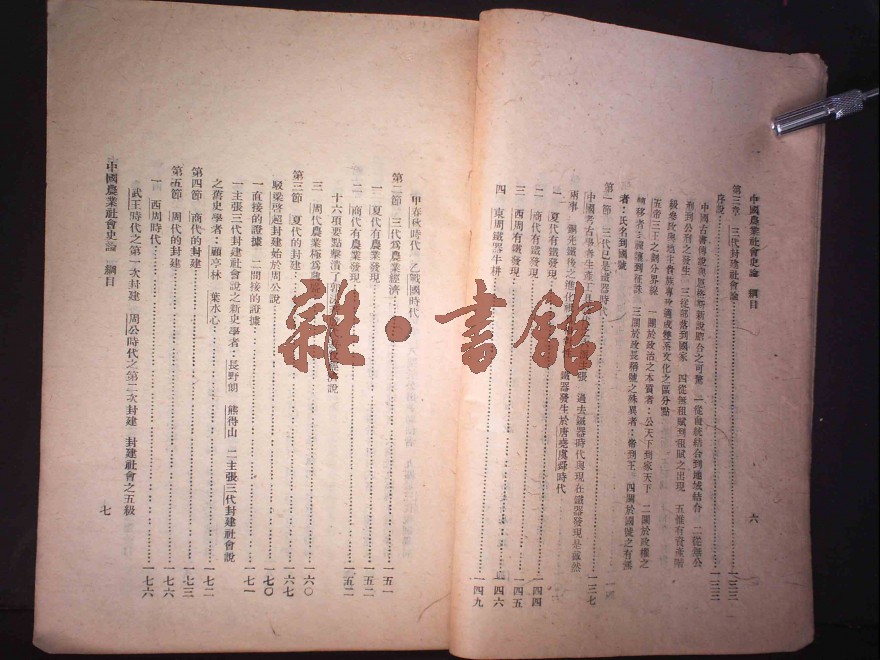 中國農業社會史論　綱目
六
第三章　三代封建社會論……一三三
序說……一三三
中國古書傳說與恩格斯新說暗合之可驚　一從血統結合到地域結合　二從無公
刑到公刑之發生　三從部落到國家　四從無租賦到租賦之出現　五惟有資產階
級參政與地主貴族專政適成雙系文化之區分點
五帝三王之劃分界線　一關於政治之本質者：公天下到家天下　二關於政權之
轉移者：禪讓到征誅　三關於政長稱號之殊異者：帝到王　四關於國號之有無
者：氏名到國號
第一節　三代已是鐵器時代……一三七
中國考古學者生產工具　主張　過去鐵器時代與現在鐵器發現是截然
兩事　銅先鐵後之進化　鐵器發生於唐堯虞舜時代
一　夏代有鐵發現……
二　商代有鐵發現……一四四
三　西周有鐵發現……一四五
四　東周鐵器牛耕……一四六
一四九
甲春秋時代　乙戰國時代
第二節　三代為農業經濟……一五一
一　夏代有農業發現……一五二
二　商代有農業發現……一五二
十六項要點擊潰了郭沫　說
三　周代農業極為　……一六〇
第三節　夏代的封建……一六七
駁梁啓超封建始於周公說……一七〇
一直接的證據　二間接的證據……一七一
一主張三代封建社會說之新史學者：長野朗　熊得山　二主張三代封建社會說
之舊史學者：顧亭林　葉水心……一七二
第四節　商代的封建……一七三
第五節　周代的封建……一七六
一　西周時代……一七六
武王時代之第一次封建　周公時代之第二次封建　封建社會之五級
中國農業社會史論　綱目
七
雜·書館